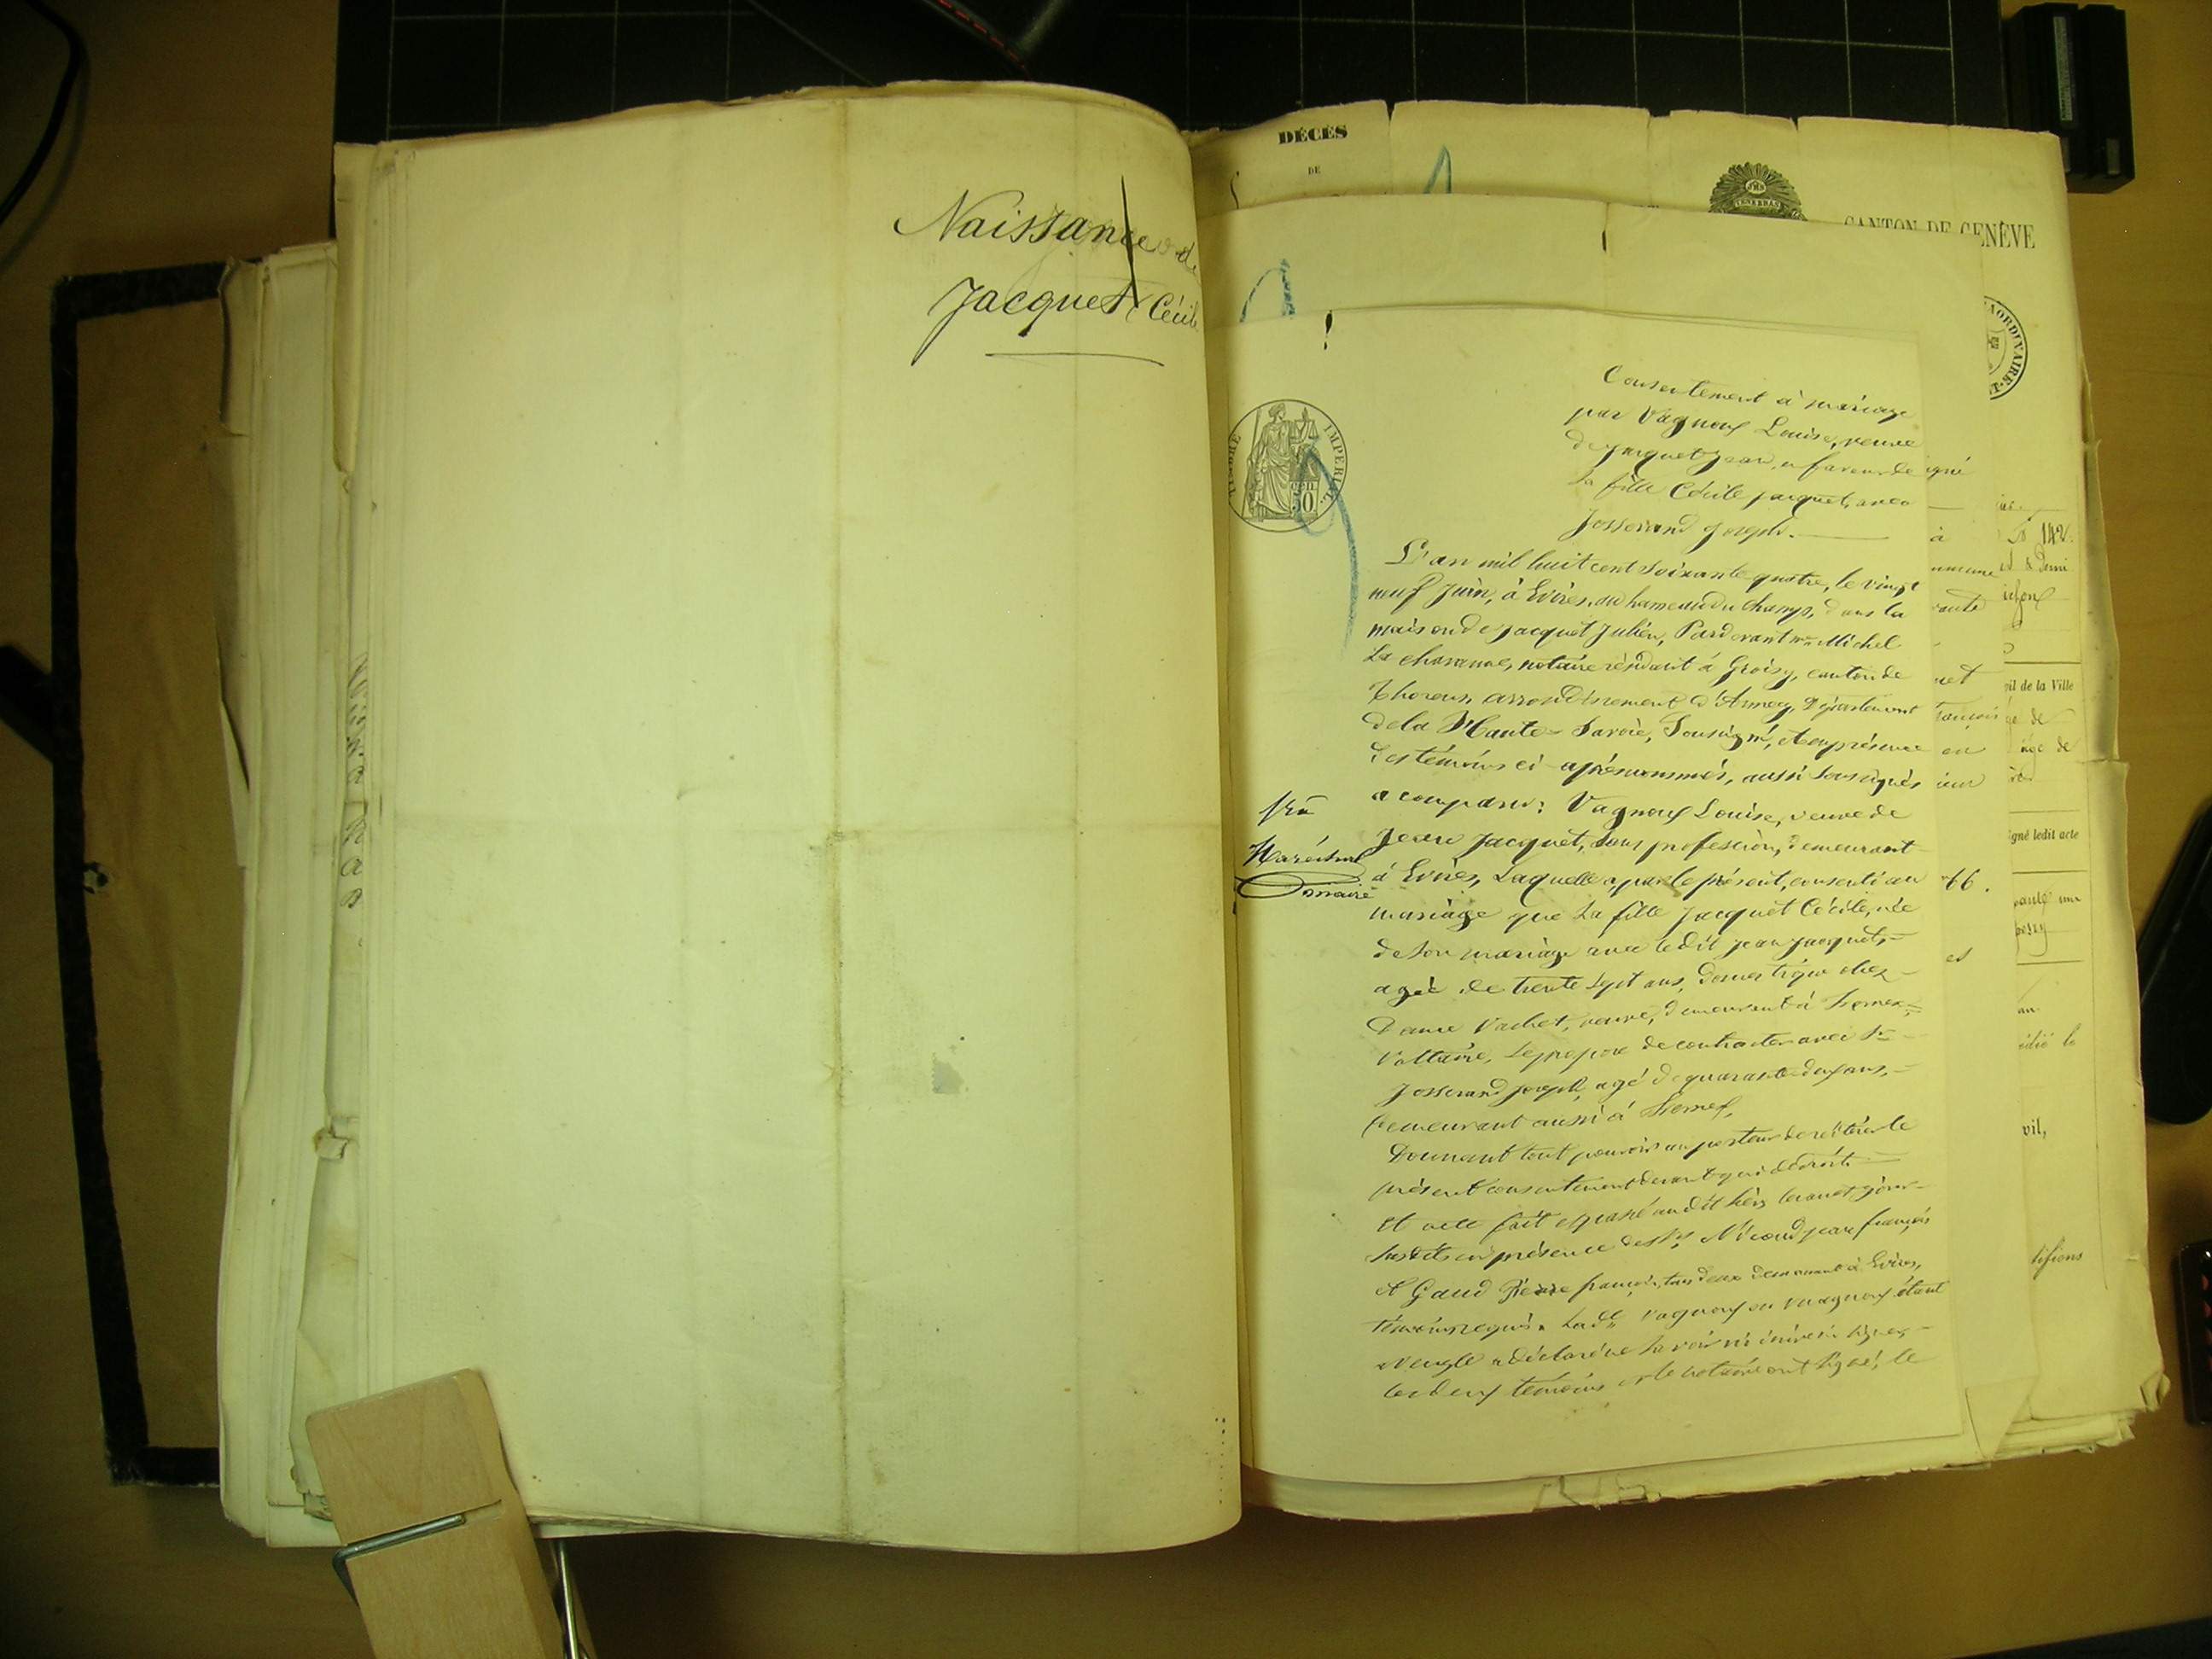 Naissance de
Jacquet Cécile
DÉCÈS
DE
CANTON DE GENÈVE
TIMBRE IMPÉRIAL
50
Consentement à mariage
par Vagnoux Louise, veuve
de Jacquet Jean, en faveur de
sa fille Cécile Jacquet, avec
Josserand Joseph.
L'an mil huit cent soixante quatre, le vingt
neuf juin, à Evires, au hameau du Champ, dans la
maison de Jacquet Julien, Pardevant me Michel
La charanne, notaire résidant à Groisy, canton de
Thorens, arrondissement d'Annecy, Département
de la Haute-Savoie, Soussigné, et en présence
des témoins ci-après nommés, aussi soussignés
a comparu: Vagnoux Louise, veuve de
Jean Jacquet, sans profession, demeurant
à Evires, Laquelle a, par le présent, consenti au
mariage que sa fille Jacquet Cécile, née
de son mariage avec le dit Jean Jacquet,
agée de trente sept ans, domestique chez
Dame Vachet, veuve, demeurant à Fernex-
Voltaire, se propose de contracter avec Sr
Josserand Joseph, agé de quarante deux ans,
demeurant aussi à Fernex,
Donnant tout pouvoir au porteur de réitérer le
présent consentement devant qui de droit.
Et acte fait et passé au dit lieu les an et jour
susdits en présence des Srs Nicoud Jean françois
et Gaud Pierre françois, tous deux demeurant à Evires,
témoins requis. Lade Vagnoux ou Vuagnoux étant
aveugle a déclaré ne savoir ni écrire ni signer,
les deux témoins et le notaire ont signé, le
igné
à
N 142.
il de la Ville
âge de
igné ledit acte
66.
es
vil,
tifions